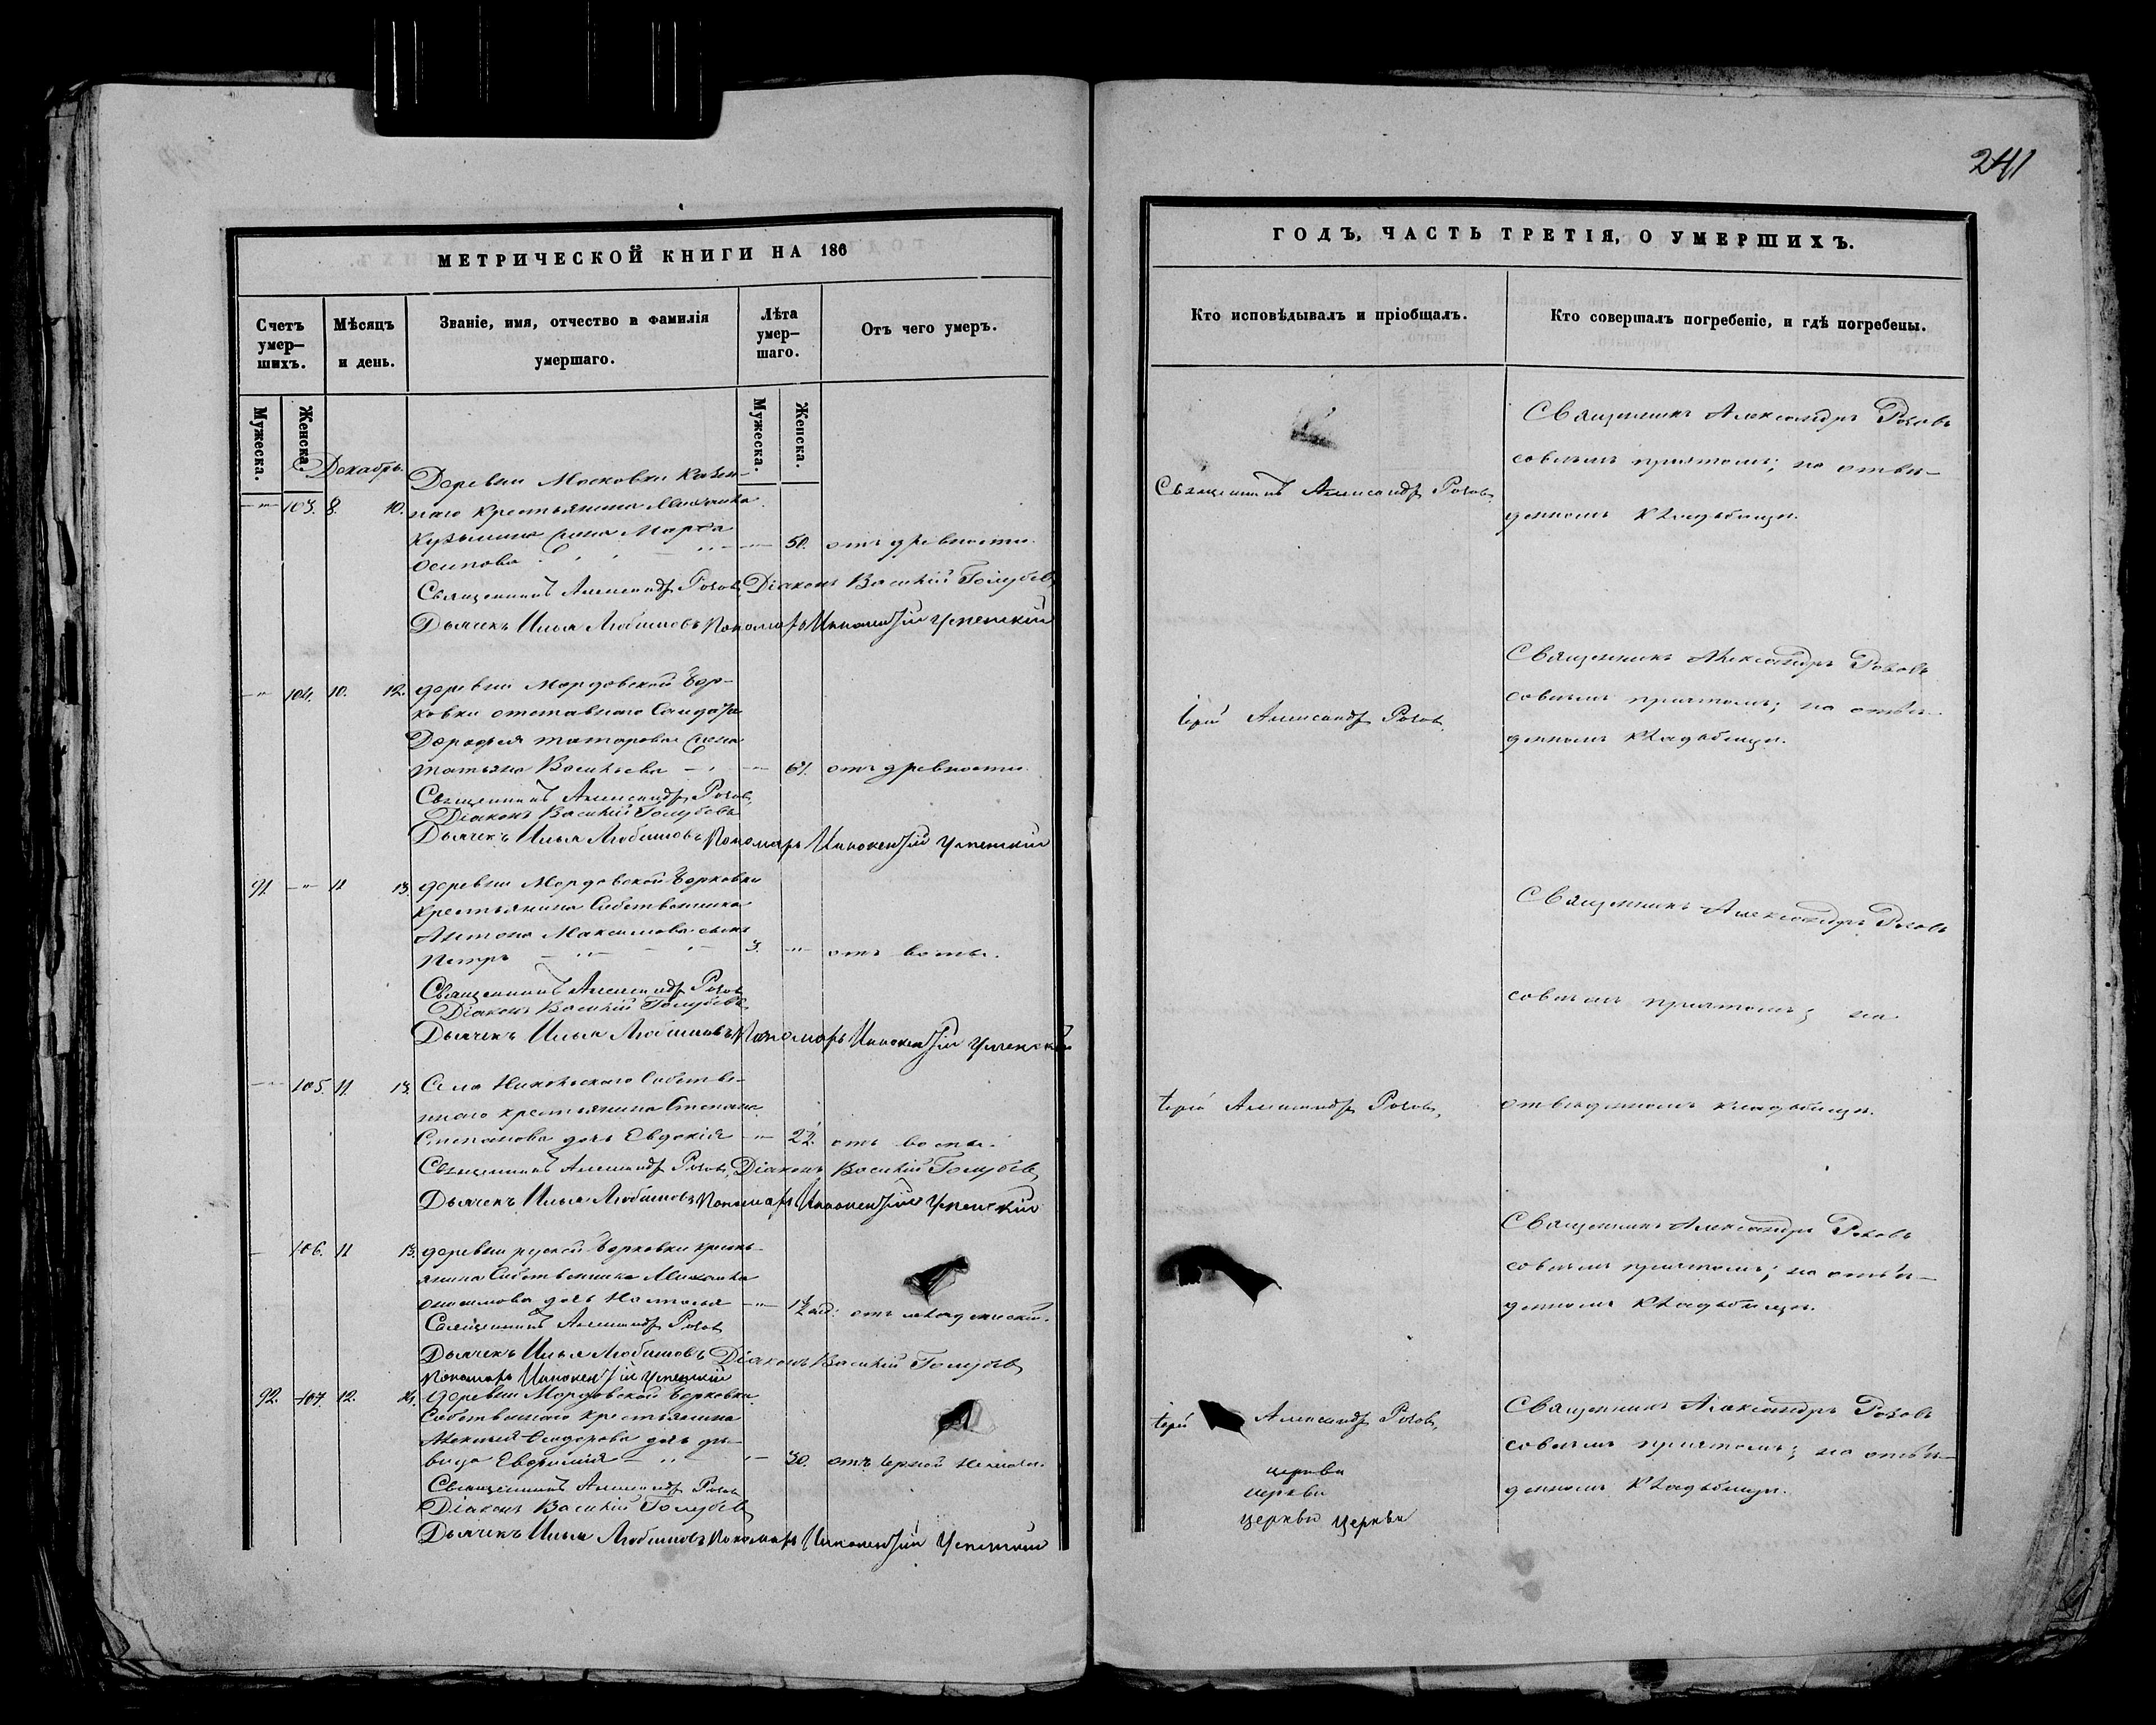 241
МЕТРИЧЕСКОЙ КНИГИ НА 186
Счетъ умер-шихъ.
Мѣсяцъ и день.
Званіе, имя, отчество и фамилія умершаго.
Лѣта умер-шаго.
Отъ чего умеръ.
Мужеска.
Женска.
Мужеска.
Женска.
Декабрь.
Деревни Московки Казен-
103. 8. 10. наго крестьянина Михаила
Кузьмина жена Марфа
Осипова 50. отъ древности.
Священникъ Александръ Розовъ Діаконъ Василій Голубевъ
Дьячекъ Илья Любимовъ Пономарь Иннокентій Успенскій
104. 10. 12. деревни Мордовской Бор-
ковки отставнаго Солдата
Дорофея жена
Татьяна Васильева 61. отъ древности.
Священникъ Александръ Розовъ
Діаконъ Василій Голубевъ
Дьячекъ Илья Любимовъ Пономарь Иннокентій Успенскій
91. 11 13. деревни Мордовской Борковки
крестьянина Собственника
Антона Максимова сынъ
Петръ 3. отъ воспы.
Священникъ Александръ Розовъ
Діаконъ Василій Голубевъ
Дьячекъ Илья Любимовъ Пономарь Иннокентій Успенскій
105. 11. 13. Села Никольскаго Собстве-
ннаго крестьянина Степана
Степанова дочь Евдокія 22. отъ воспы.
Священникъ Александръ Розовъ, Діаконъ Василій Голубевъ
Дьячекъ Илья Любимовъ Пономарь Иннокентій Успенскій
106. 11 13. деревни руской Борковки кресть-
янина Собственника Михаила
дочь Наталья отъ младенческой.
Священникъ Александръ Розовъ
Дьячекъ Илья Любимовъ Діаконъ Василій Голубевъ
Пономарь Иннокентій Успенскій
92. 107. 12. 14. деревни Мордовской Борковки
Собственнаго крестьянина
Алексея Сидорова дочь дѣ-
вица Евфимія 30. отъ черной немочи.
Священникъ Александръ Розовъ
Діаконъ Василій Голубевъ
Дьячекъ Илья Любимовъ Пономарь Иннокентій Успенскій
ГОДЪ, ЧАСТЬ ТРЕТІЯ, О УМЕРШИХЪ.
Кто исповѣдывалъ и пріобщалъ.
Кто совершалъ погребеніе, и гдѣ погребены.
Священникъ Александръ Розовъ
совсѣмъ причтомъ; на отве-
Священникъ Александръ Розовъ
денномъ кладбищѣ.
Священникъ Александръ Розовъ
совсѣмъ причтомъ; на отве-
Іерей Александръ Розовъ
денномъ кладбищѣ.
Священникъ Александръ Розовъ
совсѣмъ причтомъ; на
Іерей Александръ Розовъ,
отведенномъ кладбищѣ.
Священникъ Александръ Розовъ
совсѣмъ причтомъ; на отве-
денномъ кладбищѣ.
Священникъ Александръ Розовъ
Іерей Александръ Розовъ,
совсѣмъ причтомъ; на отве-
церкви
денномъ кладбищѣ.
церкви
церкви церкви